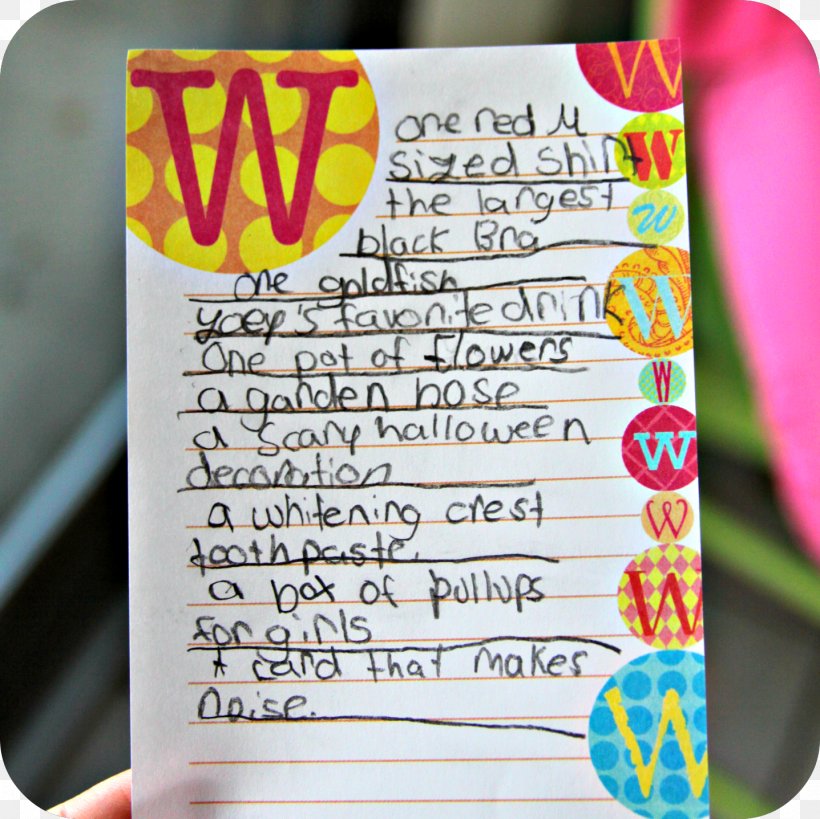 W
W
one red M
sized shirt
W
the largest
W
black Bra
one goldfish
W
yoey's favorite drink
One pot of flowers
W
a garden hose
a scary halloween
W
decoration
a whitening crest
W
toothpaste.
a box of pullups
W
for girls
A card that makes
W
noise.